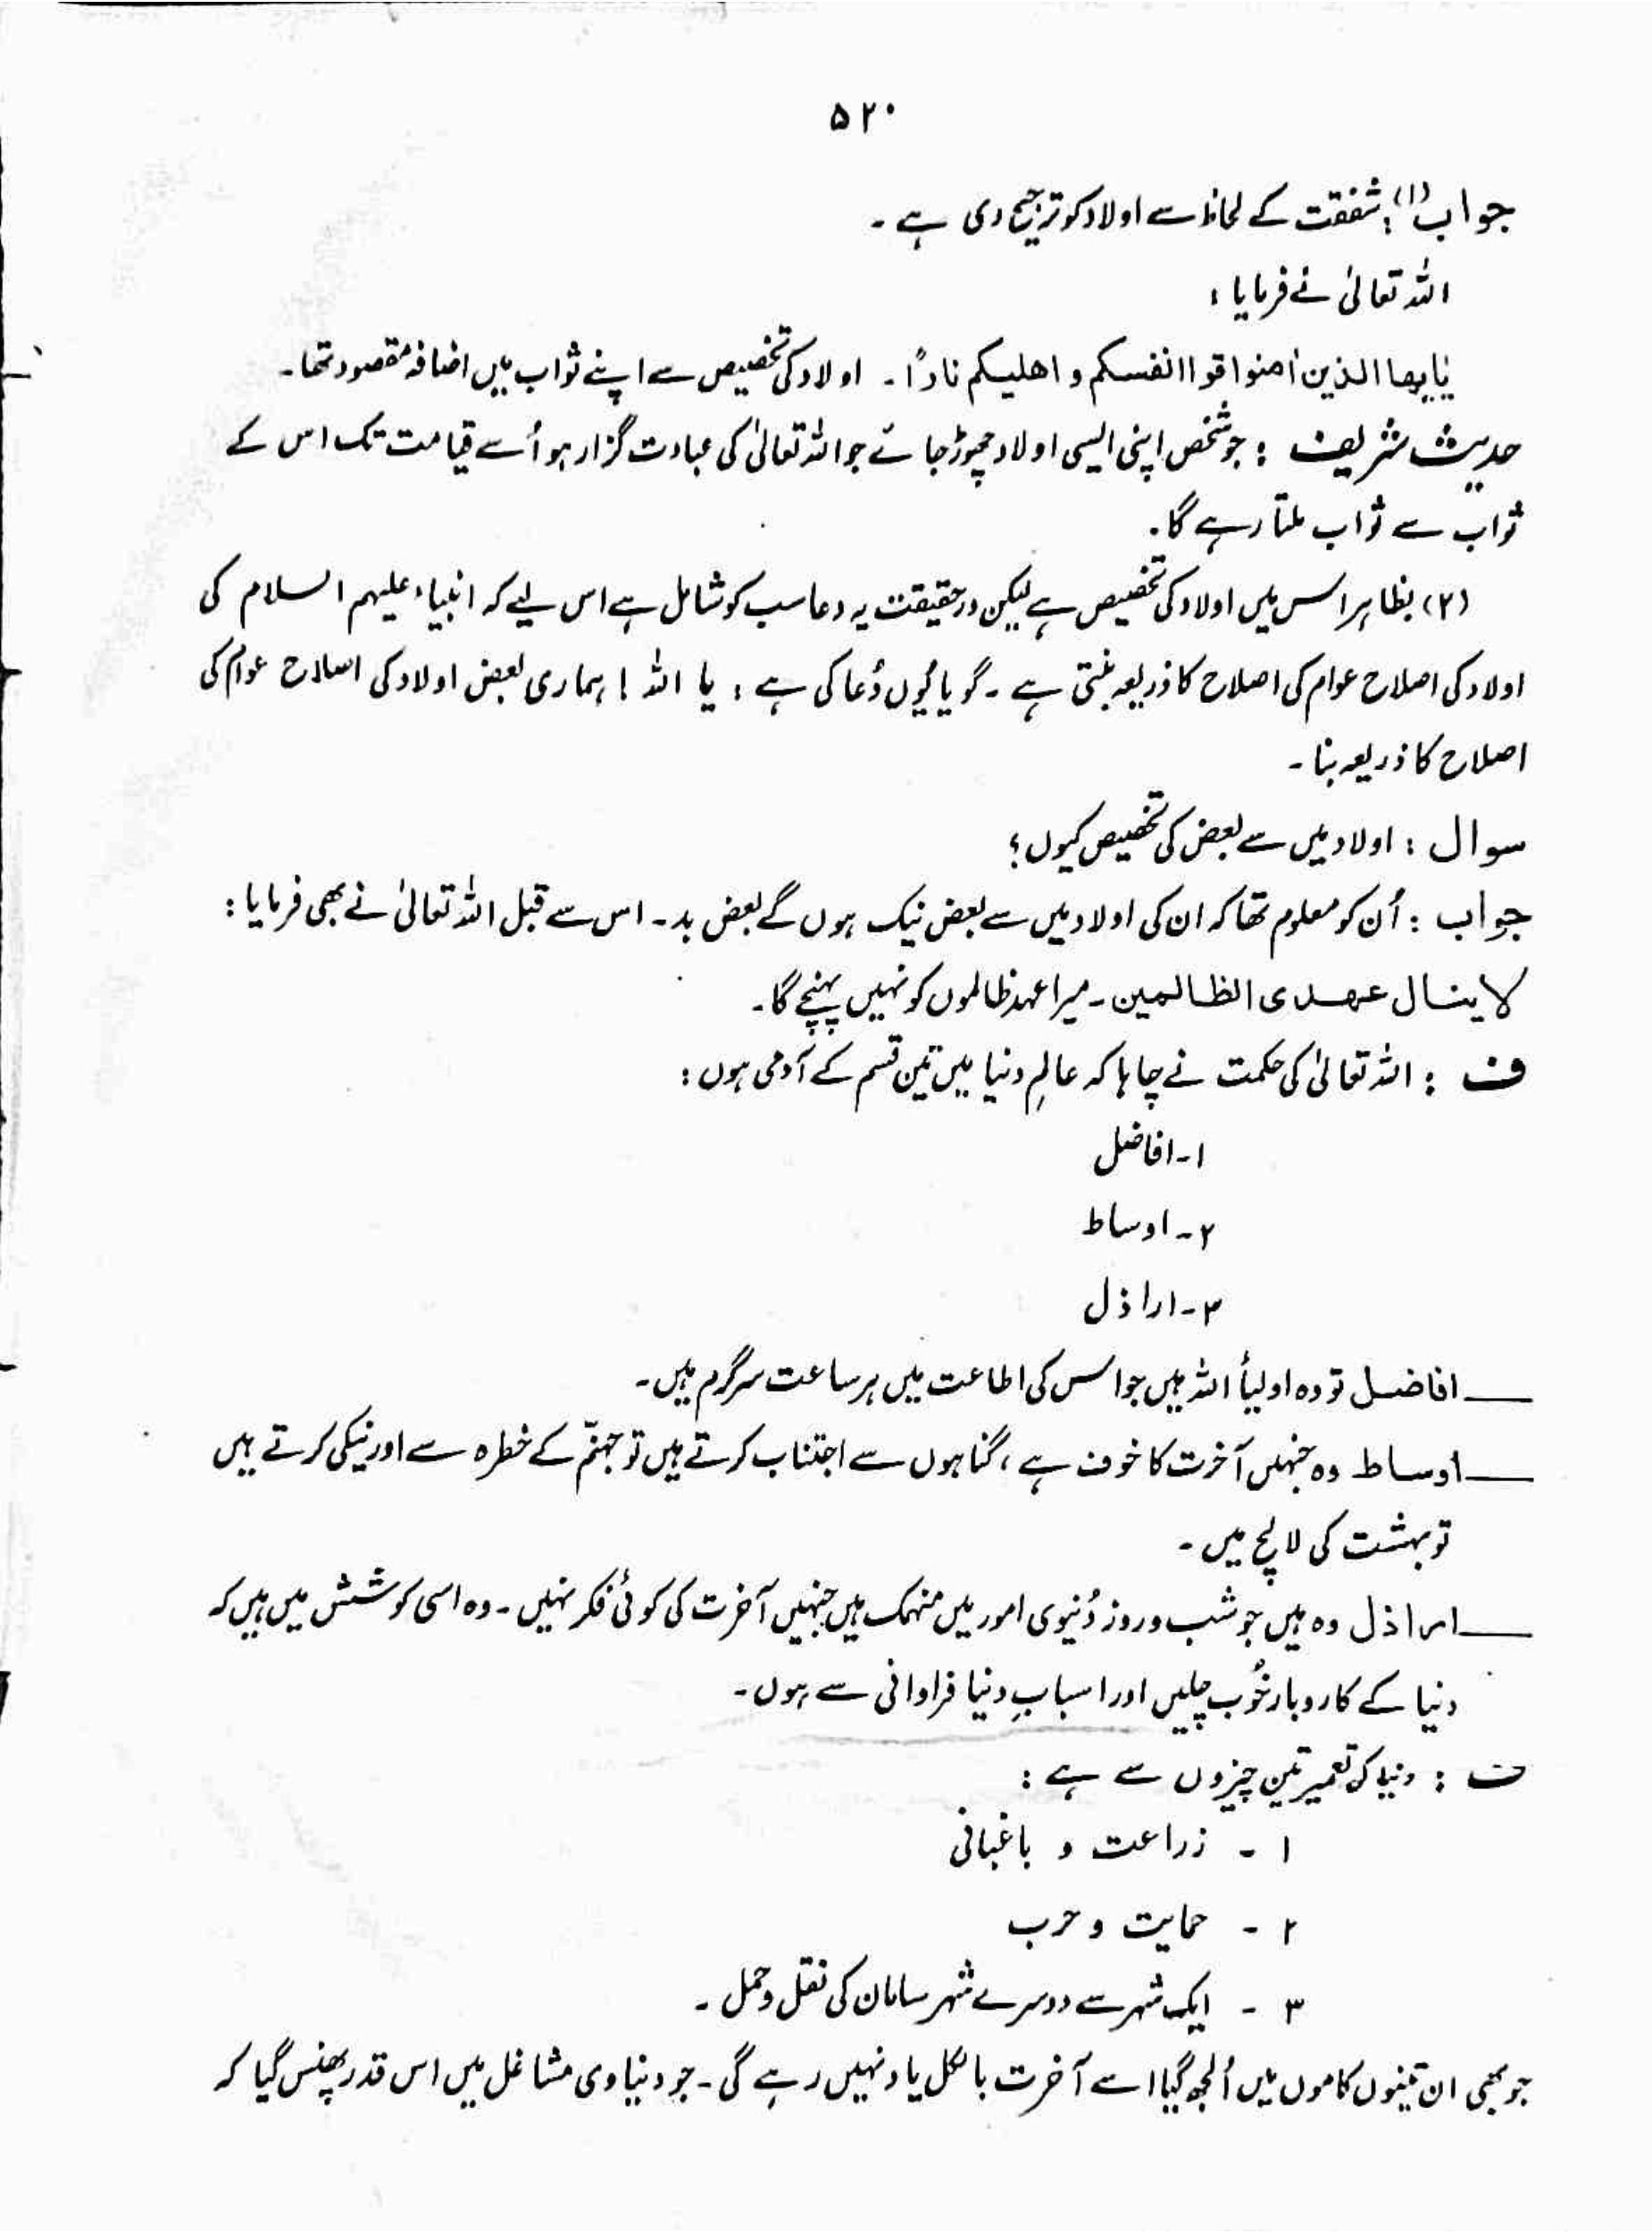 ۵۲۰
جواب (۱): شفقت کے لحاظ سے اولاد کو ترجیح دی ہے۔
اللہ تعالیٰ نے فرمایا :
یٰایھا الذین اٰمنوا قوا انفسکم و اھلیکم نارًا۔ اولاد کی تخصیص سے اپنے ثواب میں اضافہ مقصود تھا۔
حدیث شریف : جو شخص اپنی ایسی اولاد چھوڑ جائے جو اللہ تعالیٰ کی عبادت گزار ہو اُسے قیامت تک اس کے
ثواب سے ثواب ملتا رہے گا۔
(۲) بظاہر اس میں اولاد کی تخصیص ہے لیکن درحقیقت یہ دعا سب کو شامل ہے اس لیے کہ انبیاء علیہم السلام کی
اولاد کی اصلاح عوام کی اصلاح کا ذریعہ بنتی ہے۔ گویا یُوں دُعا کی ہے : یا اللہ ! ہماری بعض اولاد کی اصلاح عوام کی
اصلاح کا ذریعہ بنا۔
سوال : اولاد میں سے بعض کی تخصیص کیوں؟
جواب : اُن کو معلوم تھا کہ ان کی اولاد میں سے بعض نیک ہوں گے بعض بد۔ اس سے قبل اللہ تعالیٰ نے بھی فرمایا :
لا ینال عھدی الظالمین۔ میرا عہد ظالموں کو نہیں پہنچے گا۔
ف : اللہ تعالیٰ کی حکمت نے چاہا کہ عالمِ دنیا میں تین قسم کے آدمی ہوں :
۱۔ افاضل
۲۔ اوساط
۳۔ اراذل
___ افاضل تو وہ اولیأ اللہ ہیں جو اس کی اطاعت میں ہر ساعت سرگرم ہیں۔
___ اوساط وہ جنہیں آخرت کا خوف ہے ، گناہوں سے اجتناب کرتے ہیں تو جہنّم کے خطرہ سے اور نیکی کرتے ہیں
تو بہشت کی لالچ میں۔
___ اراذل وہ ہیں جو شب و روز دُنیوی امور میں منہمک ہیں جنہیں آخرت کی کوئی فکر نہیں۔ وہ اسی کوشش میں ہیں کہ
دنیا کے کاروبار خُوب چلیں اور اسبابِ دنیا فراوانی سے ہوں۔
ف : دنیا کی تعمیر تین چیزوں سے ہے :
۱ - زراعت و باغبانی
۲ - حمایت و حرب
۳ - ایک شہر سے دوسرے شہر سامان کی نقل و حمل ۔
جو بھی ان تینوں کاموں میں اُلجھ گیا اسے آخرت بالکل یاد نہیں رہے گی۔ جو دنیاوی مشاغل میں اس قدر پھنس گیا کہ